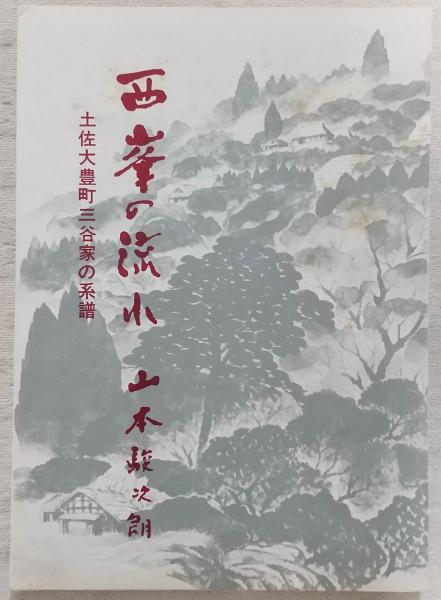 西峯の流れ
山本駿次朗
土佐大豊町三谷家の系譜